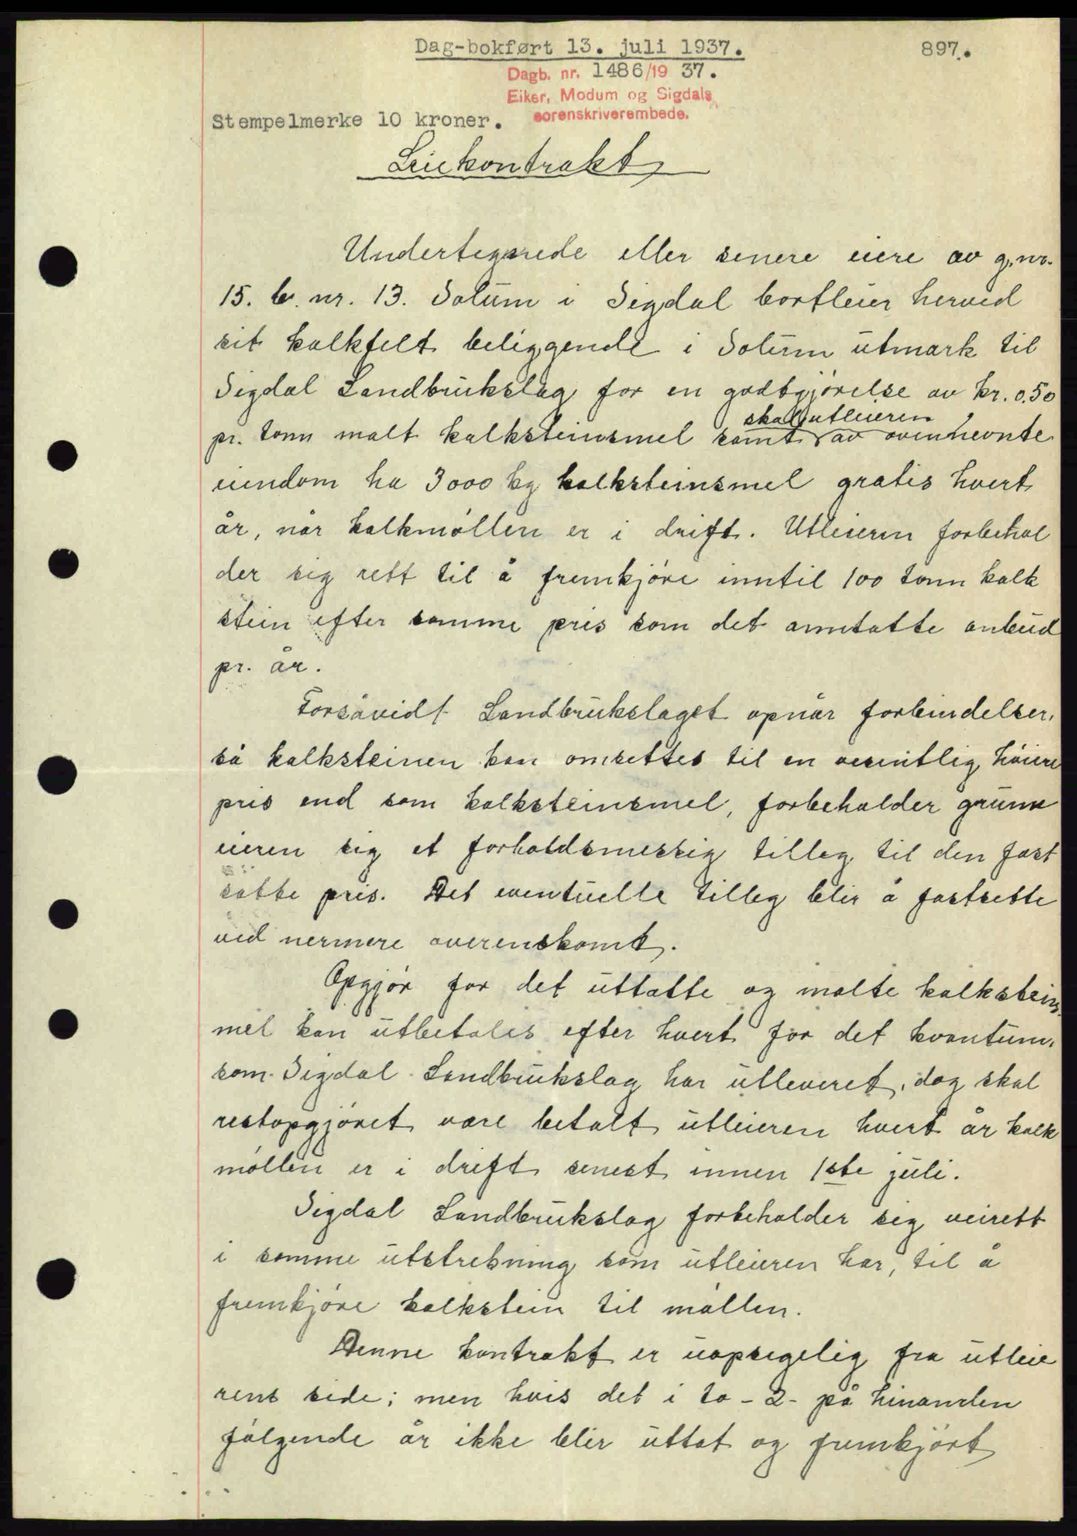 Dag-bokført 13. juli 1937.
897.
Dagb. nr. 1486/19 37.
Eiker, Modum og Sigdals
sorenskriverembede.
Stempelmerke 10 kroner.
Leiekontrakt
Undertegnede eller senere eiere av g.nr.
15. b. nr. 13. Solum i Sigdal bortleier herved
sit kalkfelt beliggende i Solum utmark til
Sigdal Landbrukslag for en godtgjörelse av kr. 0.50
skal utleieren
pr. tonn malt kalksteinsmel samt av ovennevnte
eiendom ha 3000 kg kalksteinsmel gratis hvert
år, når kalkmöllen er i drift. Utleieren forbehol
der sig rett til å fremkjöre inntil 100 tonn kalk
stein efter samme pris som det anntatte anbud
pr. år.
Forsåvidt Landbrukslaget opnår forbindelser,
så kalksteinen kan omsettes til en vesentlig höiere
pris end som kalksteinsmel, forbeholder grunn
eieren sig et forholdsmessig tilleg til den fast
satte pris. Det eventuelle tilleg blir å fastsette
ved nermere overenskomst.
Opgjör for det uttatte og malte kalkstein,
mel kan utbetales efter hvert for det kvantum,
som Sigdal Landbrukslag har utleveret, dog skal
restopgjöret være betalt utleieren hvert år kalk
möllen er i drift senest innen 1ste juli.
Sigdal Landbrukslag forbeholder sig veirett
i samme utstrekning som utleieren har, til å
fremkjöre kalkstein til möllen.
Denne kontrakt er uopsigelig fra utleie
rens side; men hvis det i to - 2 - på hinanden
fölgende år ikke blir uttat og fremkjört